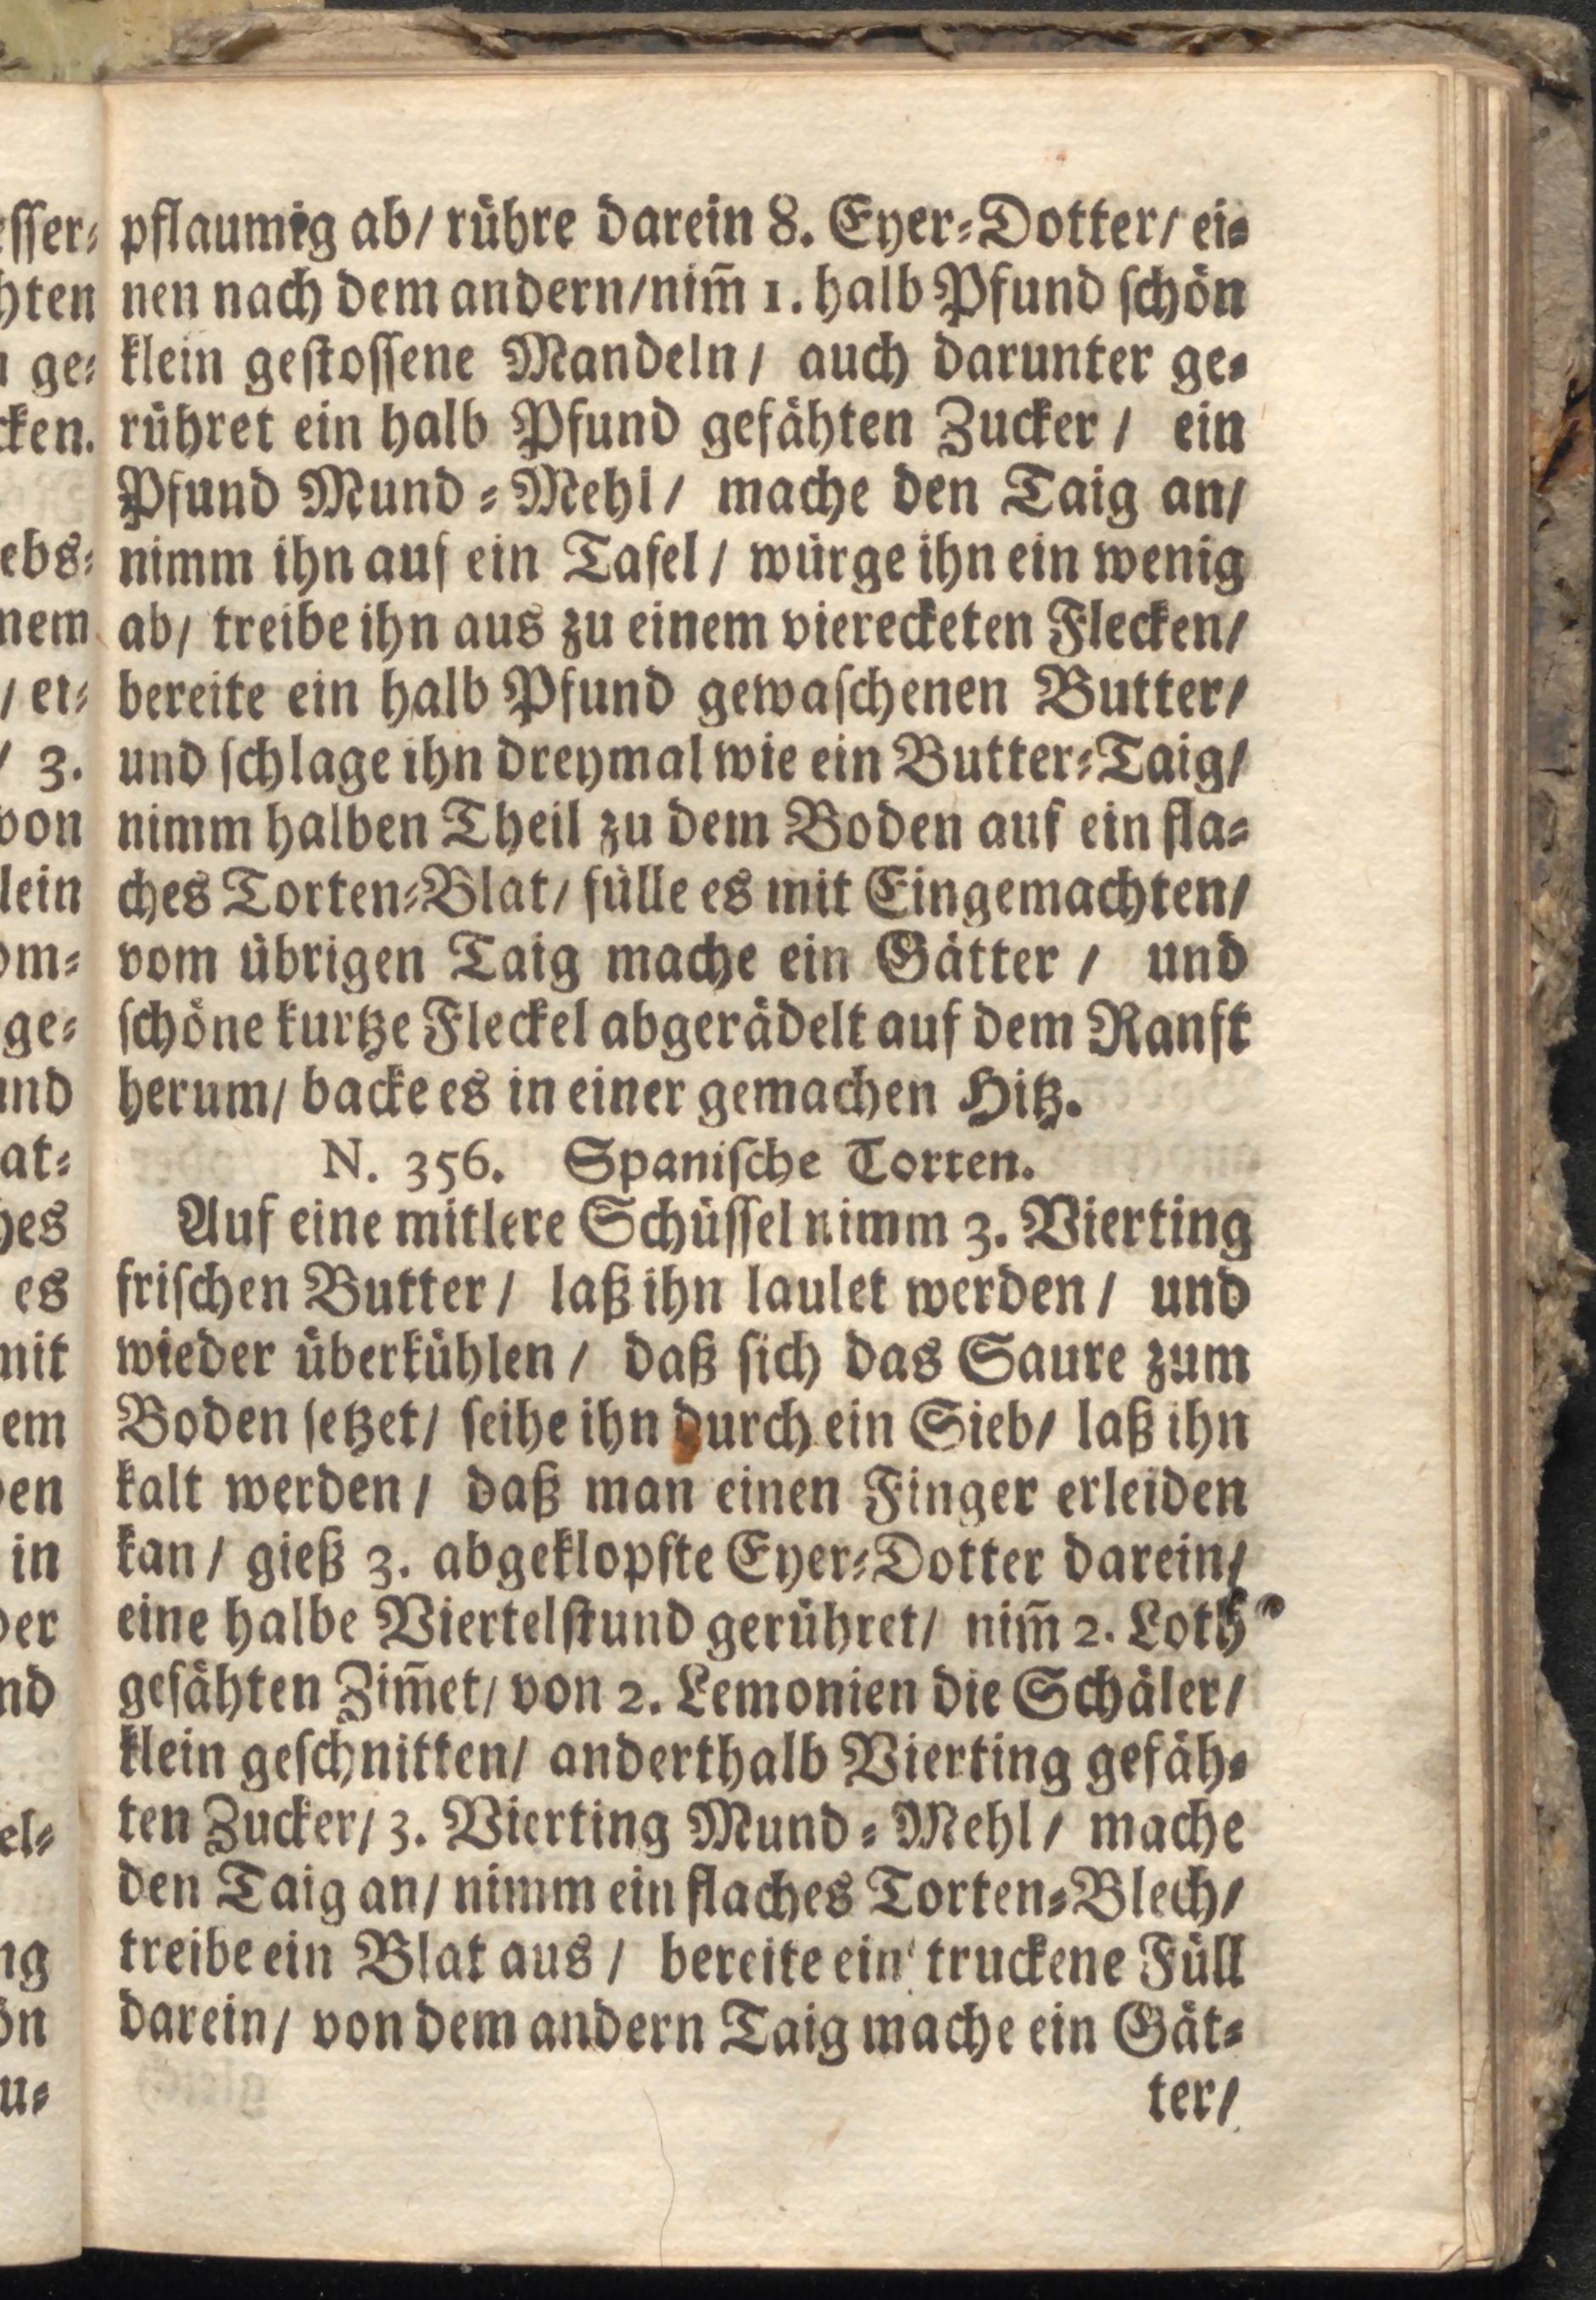 pflaumig ab/ rühre darein 8. Eyer-Dotter/ ei-
nen nach dem andern/nim̃ 1. halb Pfund schön
klein gestossene Mandeln/ auch darunter ge-
rühret ein halb Pfund gefähten Zucker/ ein
Pfund Mund-Mehl/ mache den Taig an/
nimm ihn auf ein Tafel/ würge ihn ein wenig
ab/ treibe ihn aus zu einem vierecketen Flecken/
bereite ein halb Pfund gewaschenen Butter/
und schlage ihn dreymal wie ein Butter-Taig/
nimm halben Theil zu dem Boden auf ein fla-
ches Torten-Blat/ fülle es mit Eingemachten/
vom übrigen Taig mache ein Gätter/ und
schöne kurtze Fleckel abgerädelt auf dem Ranft
herum/ backe es in einer gemachen Hitz.
N. 356. Spanische Torten.
Auf eine mitlere Schüssel nimm 3. Vierting
frischen Butter/ laß ihn laulet werden/ und
wieder überkühlen/ daß sich das Saure zum
Boden setzet/ seihe ihn durch ein Sieb/ laß ihn
kalt werden/ daß man einen Finger erleiden
kan/ gieß 3. abgeklopfte Eyer-Dotter darein/
eine halbe Viertelstund gerühret/ nim̃ 2. Loth
gefähten Zim̃et/ von 2. Lemonien die Schäler/
klein geschnitten/ anderthalb Vierting gefäh-
ten Zucker/ 3. Vierting Mund-Mehl/ mache
den Taig an/ nimm ein flaches Torten-Blech/
treibe ein Blat aus/ bereite ein truckene Füll
darein/ von dem andern Taig mache ein Gät-
ter/